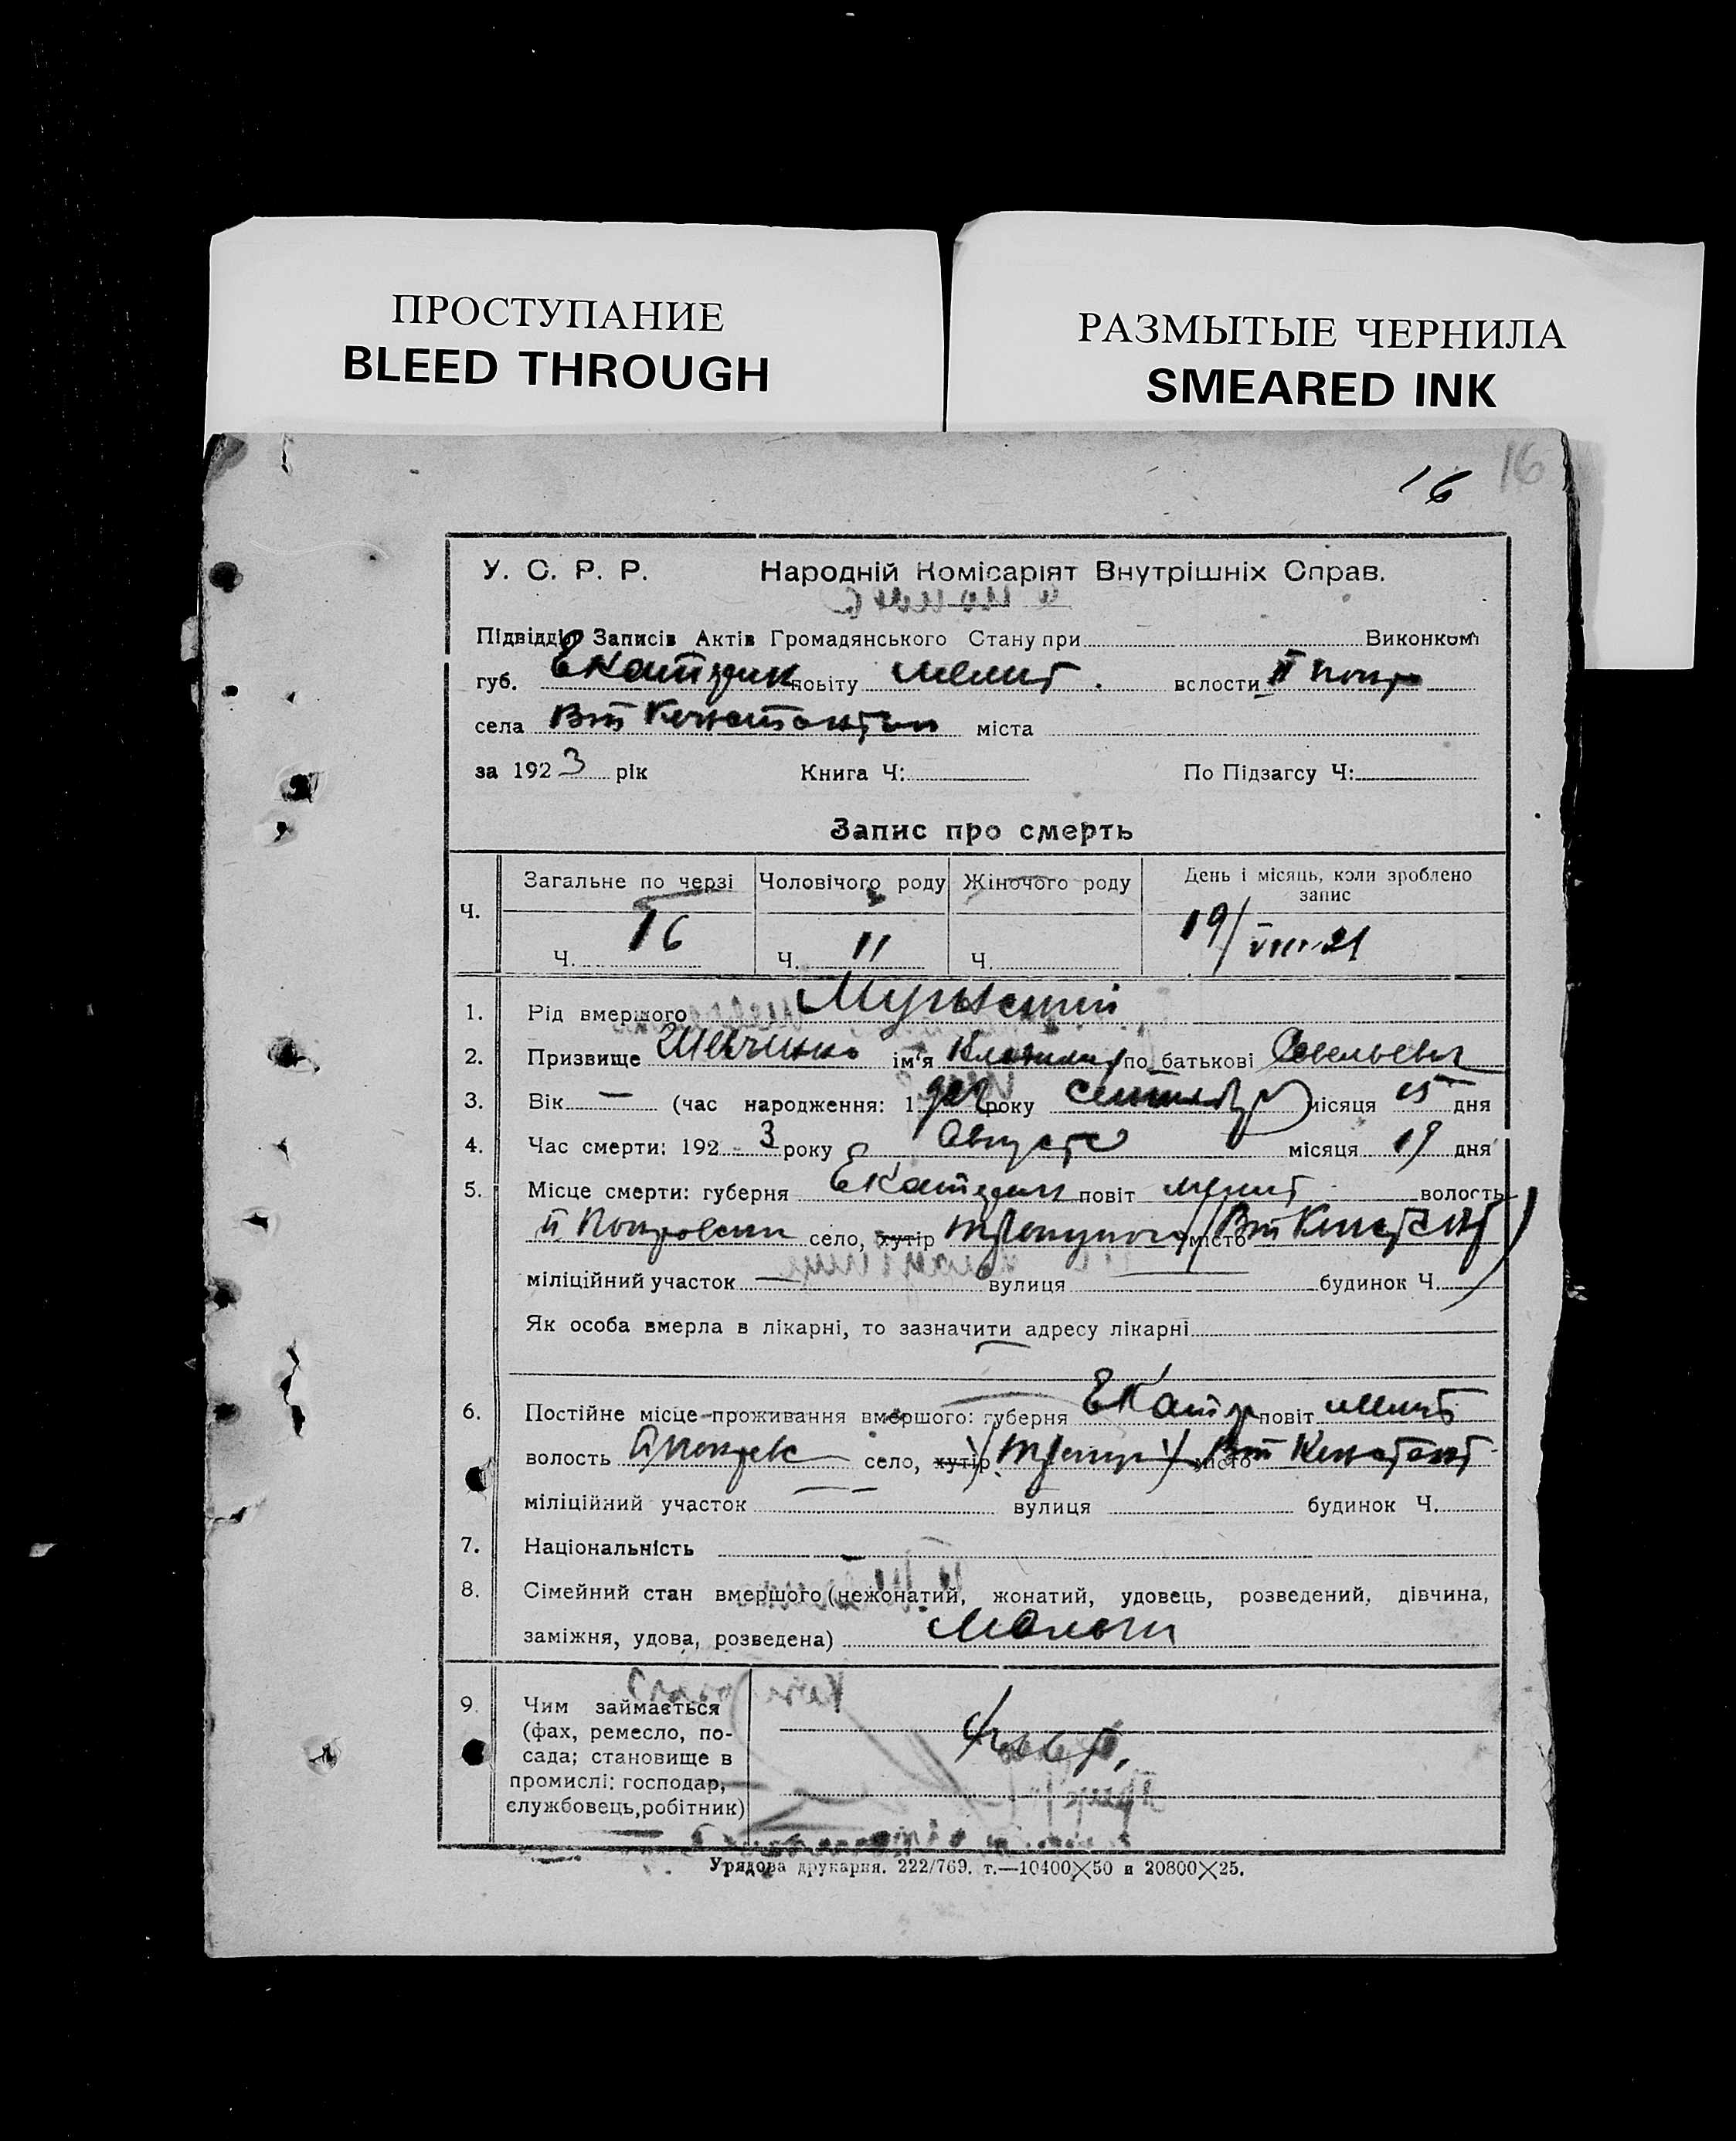 ПРОСТУПАНИЕ
BLEED THROUGH
РАЗМЫТЫЕ ЧЕРНИЛА
SMEARED INK
16 16
У. С. Р. Р. Народній Комісаріят Внутрішніх Справ.
Підвідділ Записів Актів Громадянського Стану при Виконком
губ. Екатерин повіту Мелит. волости II Покр
села Вт Константин міста
за 1923 рік Книга Ч: По Підзагсу Ч:
Запис про смерть
Загальне по черзі Чоловічого роду Жіночого роду День і місяць, коли зроблено запис
Ч. Ч. 16 Ч. 11 Ч. 19/VIII
1. Рід вмершого Мужский
2. Призвище Шевченко ім'я по батькові Савельевич
3. Вік — (час народження: 1 року сентября місяця 15 дня
4. Час смерти: 1923 року Августа місяця 19 дня
5. Місце смерти: губерня Екатерин повіт Мелит волость
II Покровская село, хутір місто Вт Констант
міліційний участок — вулиця — будинок Ч.
Як особа вмерла в лікарні, то зазначити адресу лікарні
6. Постійне місце проживання вмершого: губерня Екатер повіт Мелит
волость II Покровс село, хутір місто Вт Констант
міліційний участок — вулиця будинок Ч.
7. Національність
8. Сімейний стан вмершого (нежонатий, жонатий, удовець, розведений, дівчина,
заміжня, удова, розведена)
9. Чим займається
(фах, ремесло, по-
сада; становище в
промислі: господар,
службовець, робітник)
Урядова друкарня. 222/769. т.—10400×50 и 20800×25.